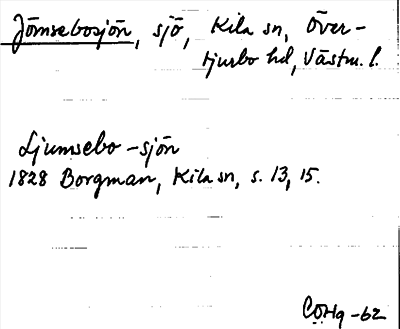 Jömsebosjön, sjö, Kila sn, Över-
tjurbo hd, Västm. l.
Ljumsebo-sjön
1828 Borgman, Kila sn, s. 13, 15.
COHq -62